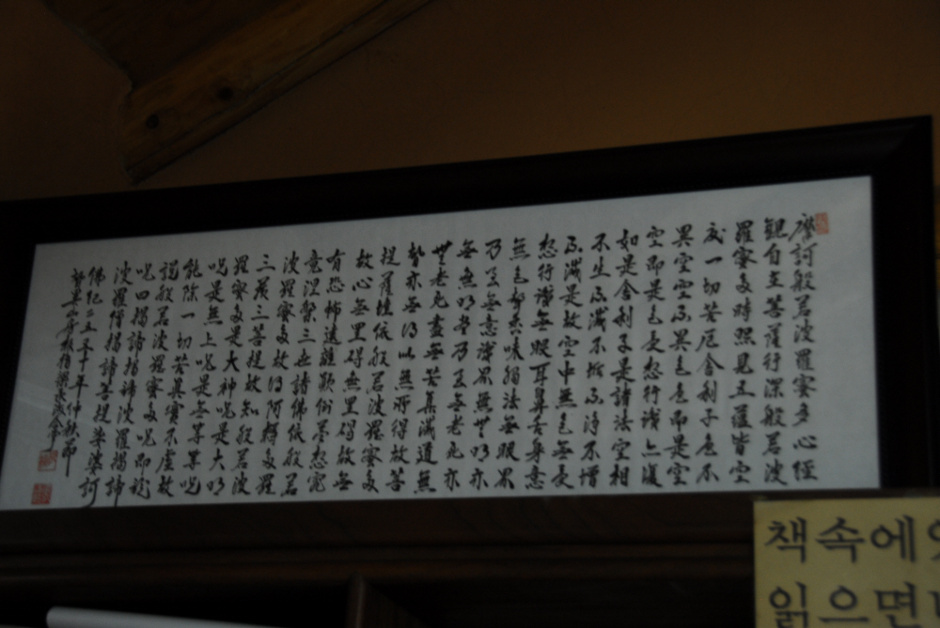 摩訶般若波羅蜜多心經
觀自在菩薩行深般若波
羅蜜多時照見五蘊皆空
度一切苦厄舍利子色不
異空空不異色色即是空
空即是色受想行識亦復
如是舍利子是諸法空相
不生不滅不垢不淨不增
不減是故空中無色無受
想行識無眼耳鼻舌身意
無色聲香味觸法無眼界
乃至無意識界無無明亦
無無明盡乃至無老死亦
無老死盡無苦集滅道無
智亦無得以無所得故菩
提薩埵依般若波羅蜜多
故心無罣碍無罣碍故無
有恐怖遠離顛倒夢想究
竟涅槃三世諸佛依般若
波羅蜜多故得阿耨多羅
三藐三菩提故知般若波
羅蜜多是大神呪是大明
呪是無上呪是無等等呪
能除一切苦真實不虛故
說般若波羅蜜多呪即說
呪曰揭諦揭諦波羅揭諦
波羅僧揭諦菩提娑婆訶
佛紀二五五十年仲秋節
책속에
읽으면